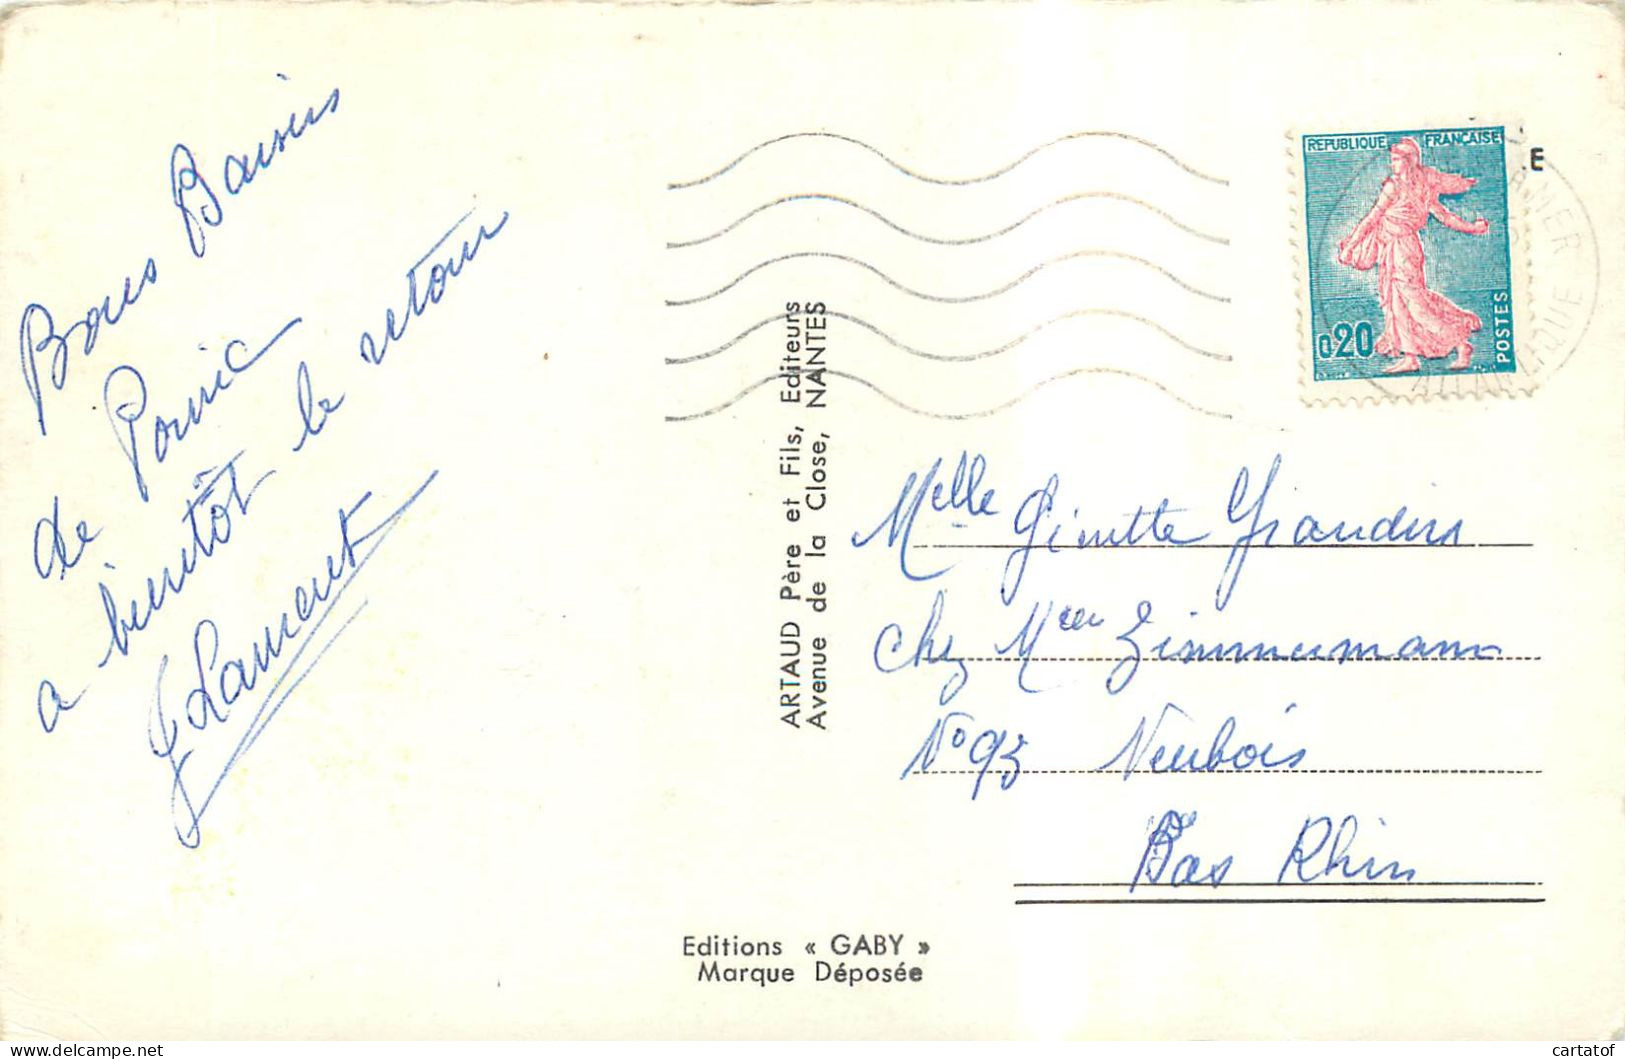 Bons Baisers
de Pornic
a bientôt le retour
Laurent
ARTAUD Père et Fils, Editeurs
Avenue de la Close, NANTES
REPUBLIQUE FRANÇAISE
0,20
POSTES
E
MER
ATLANTIQUE
Melle Ginette Grandins
chez Mme Zimmermann
N° 93 Neubois
Bas Rhin
Editions « GABY »
Marque Déposée
cartatof